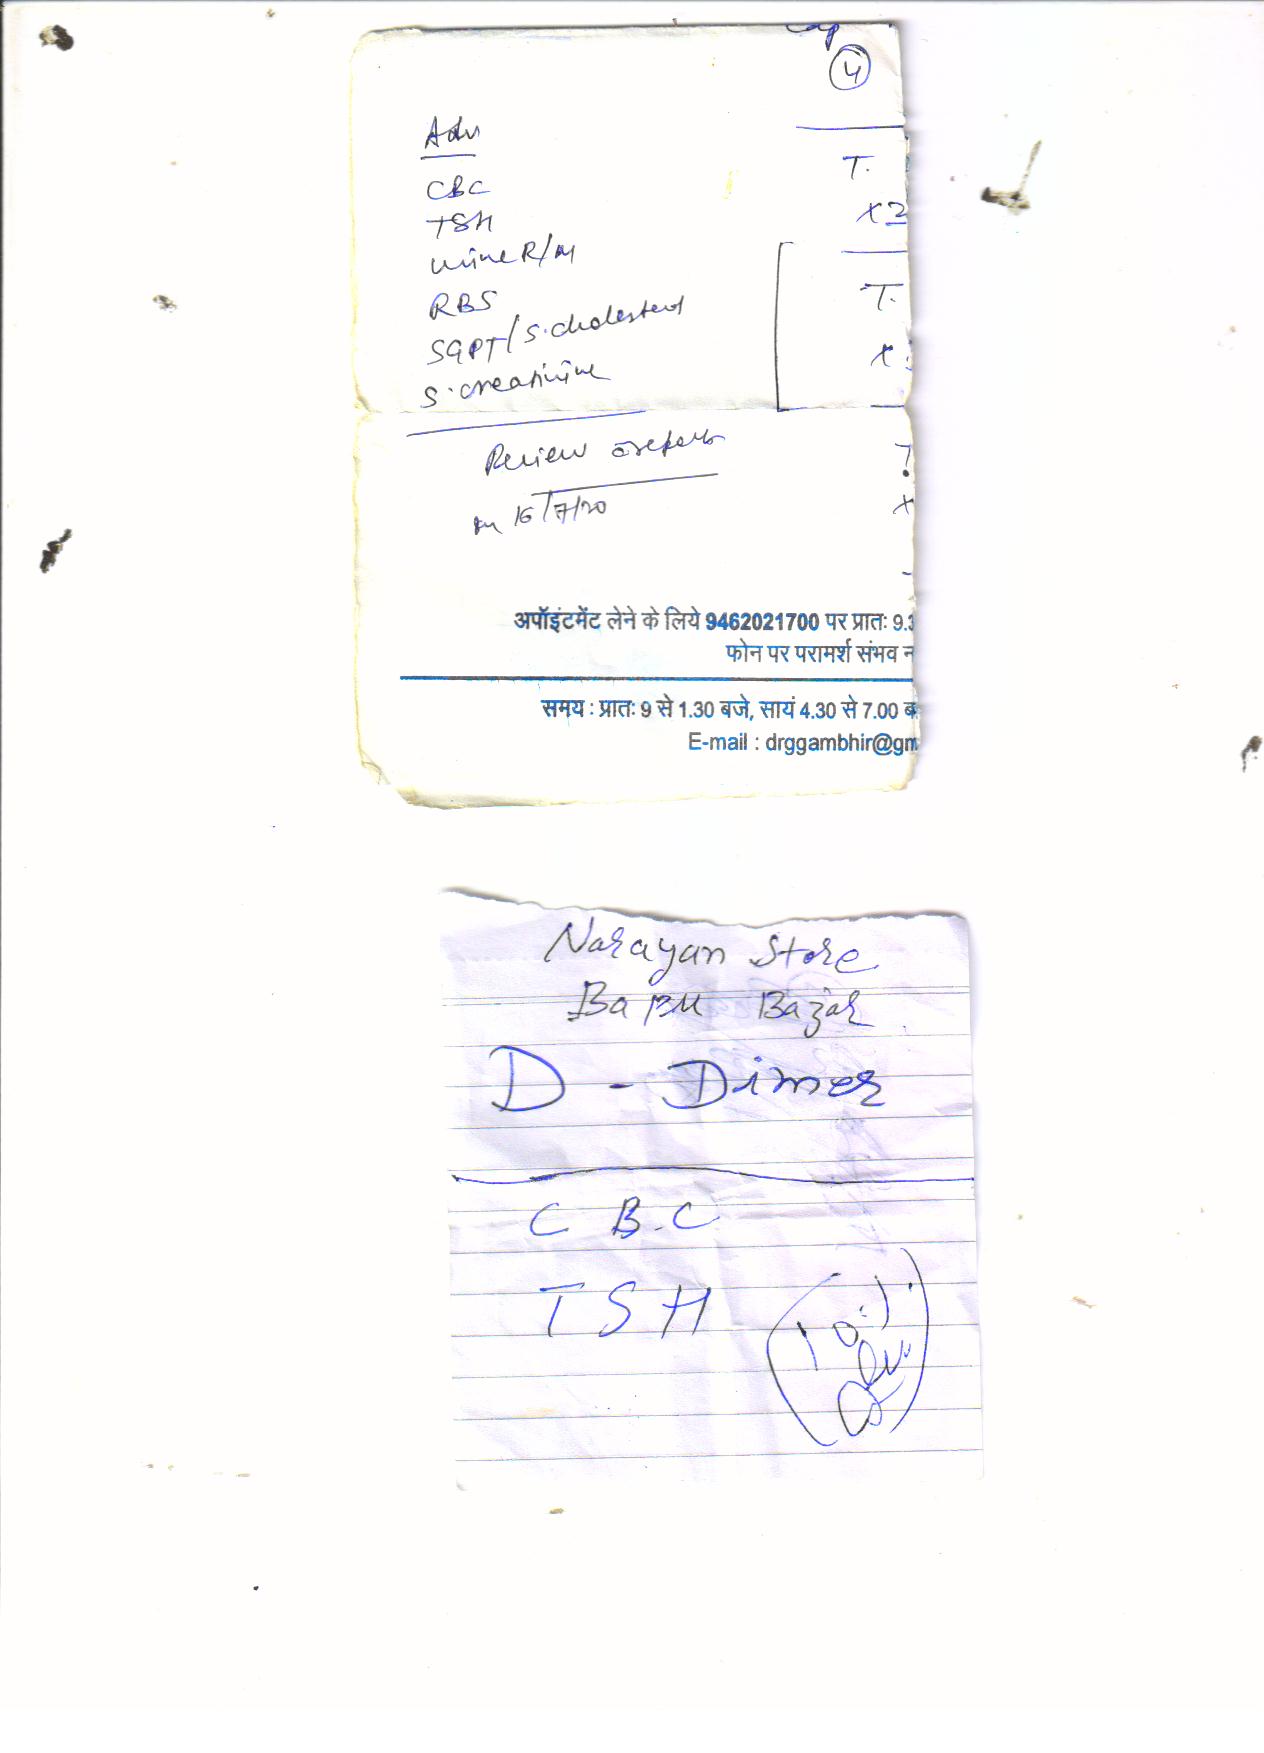 4
Adv
CBC
T.
TSH
x2
urine R/M
RBS
T.
SGPT/S.cholesterol
x
S.creatinine
Review
on 16/7/20
x
अपॉइंटमेंट लेने के लिये 9462021700 पर प्रातः 9.3
फोन पर परामर्श संभव न
समय : प्रातः 9 से 1.30 बजे, सायं 4.30 से 7.00 ब
E-mail : drggambhir@gm
Narayan Store
Bapu Bazar
D - Dimer
C B.C
T S H